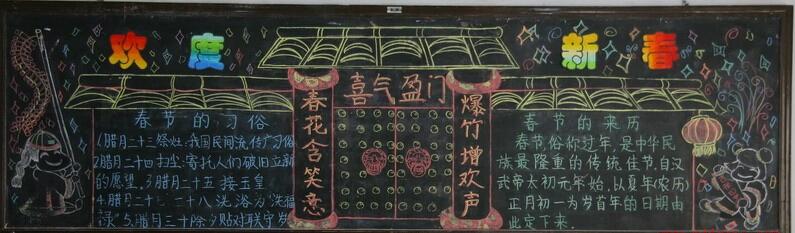 欢度
新春
喜气盈门
春花含笑意
爆竹增欢声
春节的习俗
1.腊月二十三祭灶:我国民间流传广习俗
2腊月二十四扫尘:寄托人们破旧立新
的愿望.3腊月二十五接玉皇
4.腊月二十七二十八洗浴为“洗福
禄”5.腊月三十除夕贴对联守岁
春节的来历
春节,俗称过年,是中华民
族最隆重的传统佳节,自汉
武帝太初元年始,以夏年(农历)
正月初一为岁首年的日期由
此定下来.